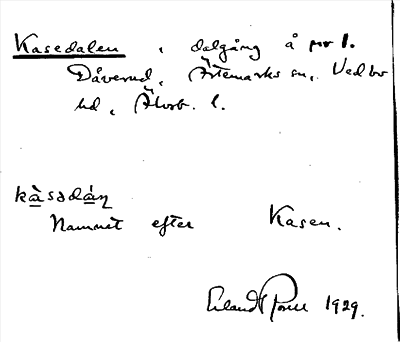 Kasedalen, dalgång å nr 1.
Dåverud, Ärtemarks sn, Vedbo
hd, Älvsb. l.
kàsadáɳ
Namnet efter Kasen.
Erland Rosell 1929.